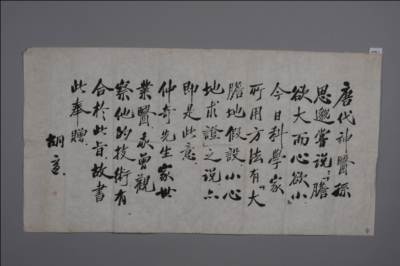 唐代神醫孫
思邈嘗說「膽
欲大而心欲小
今日科學家
所用方法有「大
膽地假設小心
地求證」之說亦
即是此意
仲奇先生家世
業醫我曾觀
察他的技術有
合於此旨故書
此奉贈
胡適